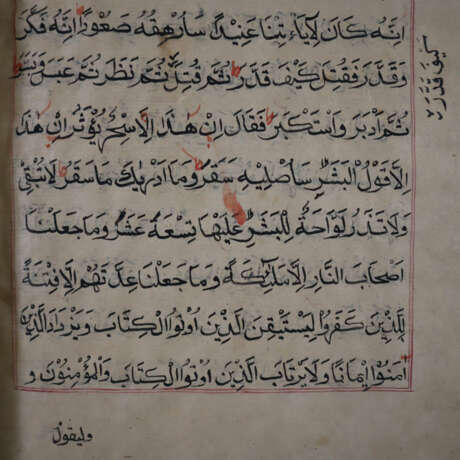 اِنَّهُ كَانَ لِاٰيَاتِنَا عَنِيْدًا سَاُرْهِقُهُ صَعُوْدًا اِنَّهُ فَكَّرَ
وَقَدَّرَ فَقُتِلَ كَيْفَ قَدَّرَ ثُمَّ قُتِلَ ثُمَّ نَظَرَ ثُمَّ عَبَسَ وَبَسَرَ
كيف قدر
ثُمَّ اَدْبَرَ وَاسْتَكْبَرَ فَقَالَ اِنْ هٰذَا اِلَّا سِحْرٌ يُؤْثَرُ اِنْ هٰذَا
اِلَّا قَوْلُ الْبَشَرِ سَاُصْلِيْهِ سَقَرَ وَمَا اَدْرٰيكَ مَا سَقَرُ لَا تُبْقِىْ
وَلَا تَذَرُ لَوَّاحَةٌ لِلْبَشَرِ عَلَيْهَا تِسْعَةَ عَشَرَ وَمَا جَعَلْنَا
اَصْحَابَ النَّارِ اِلَّا مَلٰئِكَةً وَمَا جَعَلْنَا عِدَّتَهُمْ اِلَّا فِتْنَةً
لِلَّذِيْنَ كَفَرُوْا لِيَسْتَيْقِنَ الَّذِيْنَ اُوْتُوا الْكِتَابَ وَيَزْدَادَ الَّذِيْنَ
اٰمَنُوْا اِيْمَانًا وَلَا يَرْتَابَ الَّذِيْنَ اُوْتُوا الْكِتَابَ وَالْمُؤْمِنُوْنَ وَ
وليقول